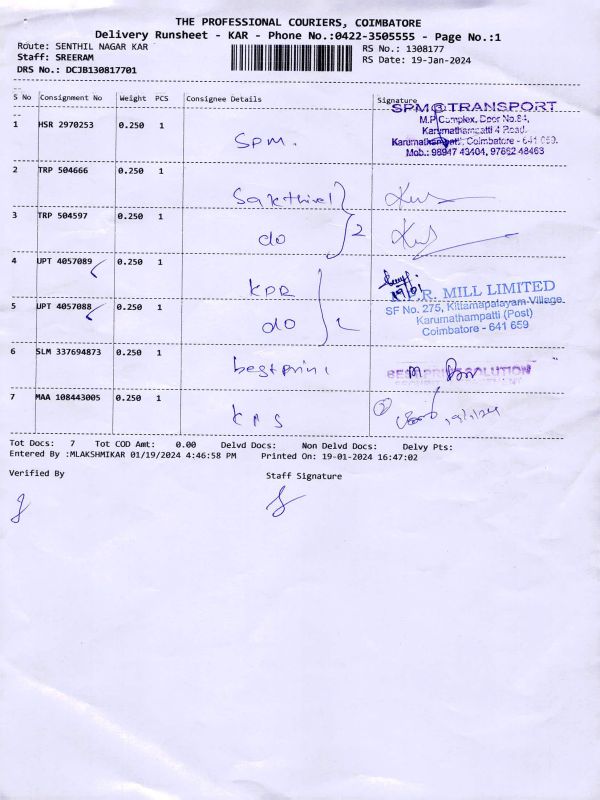 THE PROFESSIONAL COURIERS, COIMBATORE
Delivery Runsheet - KAR - Phone No.:0422-3505555 - Page No.:1
Route: SENTHIL NAGAR KAR RS No.: 1308177
Staff: SREERAM RS Date: 19-Jan-2024
DRS No.: DCJB130817701
S No Consignment No Weight PCS Consignee Details Signature
1 HSR 2970253 0.250 1 SPM.
SPM@TRANSPORT
M.P.Complex, Door No.84,
Karumathampatti 4 Road,
Karumathampatti, Coimbatore - 641 659.
Mob.: 98947 43404, 97862 48463
2 TRP 504666 0.250 1 Sakthivel
3 TRP 504597 0.250 1 do 2
4 UPT 4057089 0.250 1 KPR
19/01
MILL LIMITED
SF No. 275, Kittampalayam Village,
Karumathampatti (Post)
Coimbatore - 641 659
5 UPT 4057088 0.250 1 do
6 SLM 337694873 0.250 1 bestprint
7 MAA 108443005 0.250 1 KPS 19/1/24
Tot Docs: 7 Tot COD Amt: 0.00 Delvd Docs: Non Delvd Docs: Delvy Pts:
Entered By :MLAKSHMIKAR 01/19/2024 4:46:58 PM Printed On: 19-01-2024 16:47:02
Verified By Staff Signature